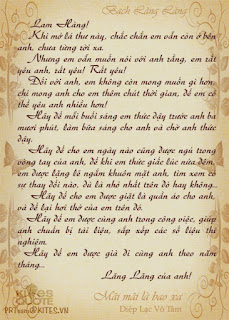 Bạch Lăng Lăng
Lam Hàng!
Khi mở lá thư này, chắc chắn em vẫn còn ở bên
anh, chưa từng rời xa.
Nhưng em vẫn muốn nói với anh rằng, em rất
yêu anh, rất yêu! Rất yêu!
Đối với anh, em không còn mong muốn gì hơn,
chỉ mong anh cho em thêm chút thời gian, để em có
thể yêu anh nhiều hơn!
Hãy để mỗi buổi sáng em thức dậy trước anh ba
mươi phút, làm bữa sáng cho anh và chờ anh thức
dậy.
Hãy để cho em ngày nào cũng được ngủ trong
vòng tay của anh, để khi em thức giấc lúc nửa đêm,
em được lặng lẽ ngắm khuôn mặt anh, tìm xem có
sự thay đổi nào, dù là nhỏ nhất trên đó hay không...
Hãy để cho em được giặt là quần áo cho anh,
và để lại hơi thở của em trên đó.
Hãy để em được cùng anh trong công việc, giúp
anh chuẩn bị tài liệu, sắp xếp các số liệu thí
nghiệm.
Hãy để em được già đi cùng anh theo năm
tháng...
Lăng Lăng của anh!
KITES
QUOTE
Mãi mãi là bao xa
PRTeam@KITES.VN
Diệp Lạc Vô Tâm